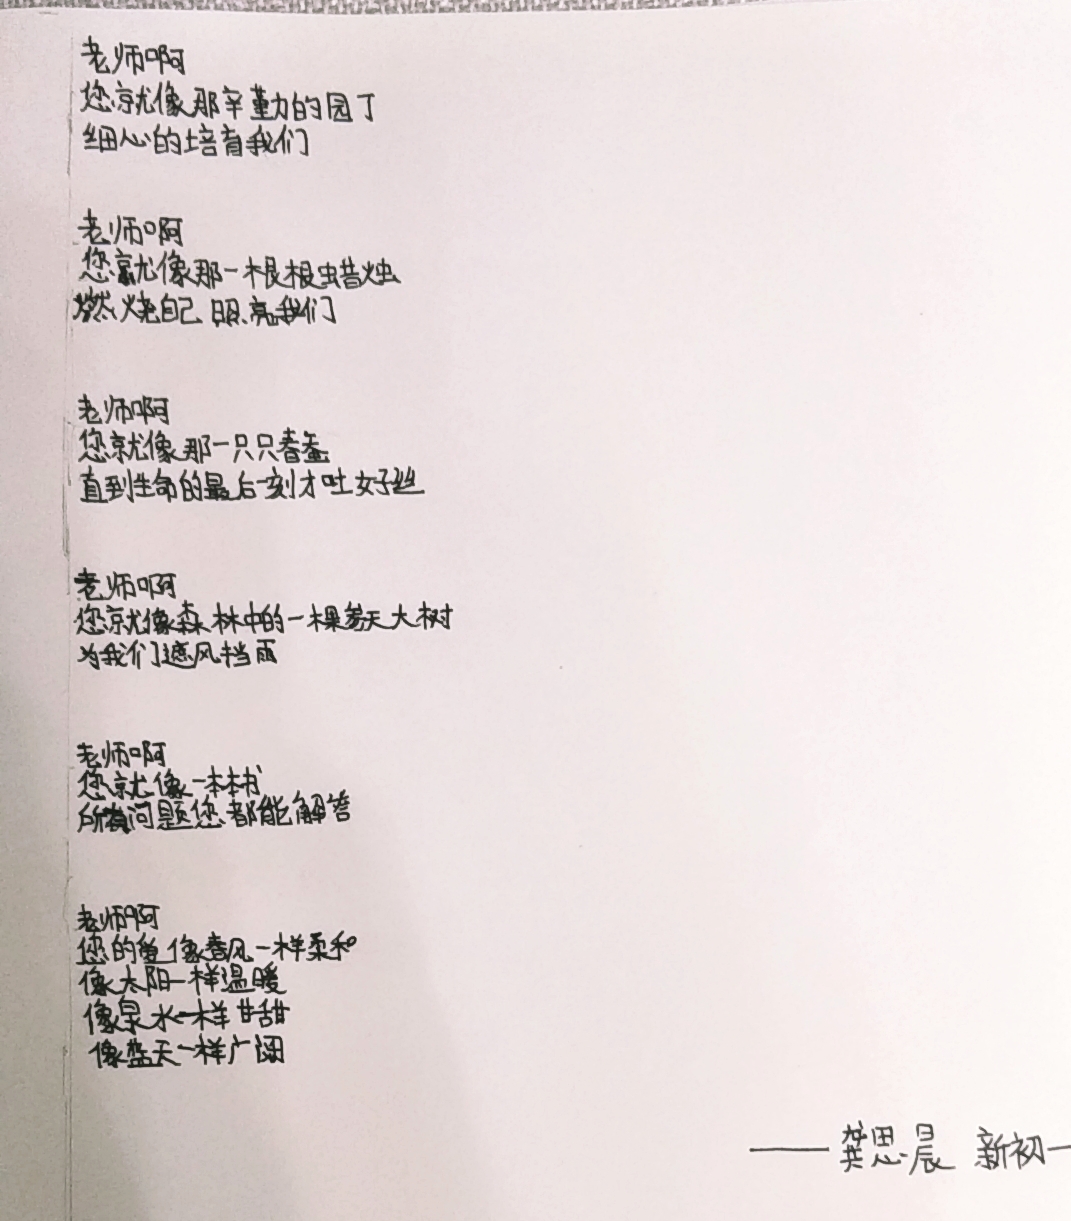 老师啊
您就像那辛勤的园丁
细心的培育我们
老师啊
您就像那一根根蜡烛
燃烧自己 照亮我们
老师啊
您就像那一只只春蚕
直到生命的最后一刻才吐好丝
老师啊
您就像森林中的一棵参天大树
为我们遮风挡雨
老师啊
您就像一本本书
所有问题您都能解答
老师啊
您的爱像春风一样柔和
像太阳一样温暖
像泉水一样甘甜
像蓝天一样广阔
——龚思晨 新初一